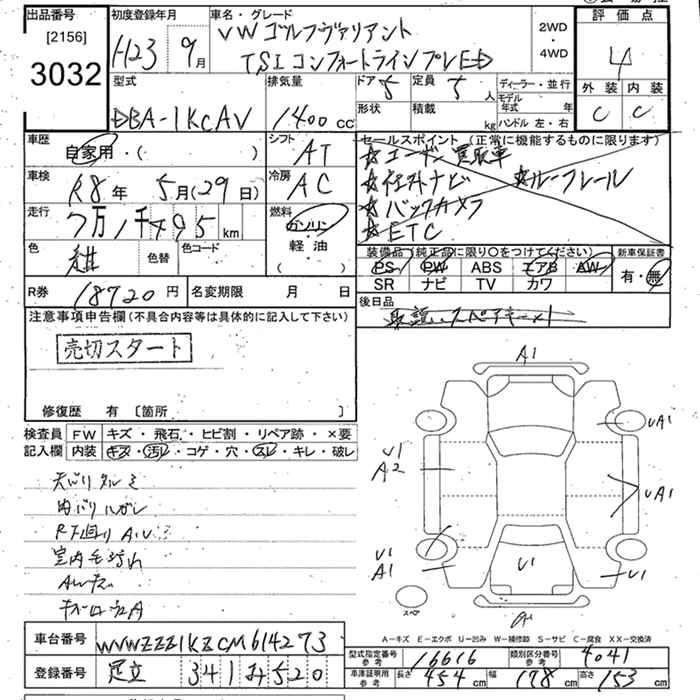 出品番号
[2156]
3032
初度登録年月
H23 9月
車名・グレード
VW ゴルフヴァリアント
TSI コンフォートライン プレミアム
2WD
・
4WD
評価点
4
外装 内装
C C
型式
DBA-1KCAV
排気量
1400 cc
ドア 5
定員 5 人
形状
積載 kg
ディーラー・並行
モデル年式 年
ハンドル 左・右
車歴
自家用・( )
シフト
AT
セールスポイント (正常に機能するものに限ります)
☆ルーフレール
☆バックカメラ
☆ETC
車検
R8年 5月(29日)
冷房
AC
走行
7万1千495km
燃料
ガソリン
軽油
( )
色
色替
色コード
装備品(純正品に限り○をつけてください)
PS PW ABS エアB AW
SR ナビ TV カワ
新車保証書
有・無
R券 18720円
名変期限 月 日
後日品
注意事項申告欄(不具合内容等は具体的に記入して下さい)
売切スタート
修復歴 有 [箇所 ]
検査員 FW キズ・飛石・ヒビ割・リペア跡・×要
記入欄 内装 キズ・汚レ・コゲ・穴・スレ・キレ・破レ
天バリタルミ
内バリハガレ
室内毛汚れ
AWキズ
A1
UA1
U1
A2
UA1
U1
A1
U1
U1
スペア
A-キズ E-エクボ U-凹み W-補修跡 S-サビ C-腐食 XX-交換済
車台番号 WVWZZZ1KZCM614273
登録番号 足立 341 み 520
型式指定番号 参考 16616
類別区分番号 参考 4041
車庫証明用 参考 長さ 454cm 幅 178cm 高さ 153cm